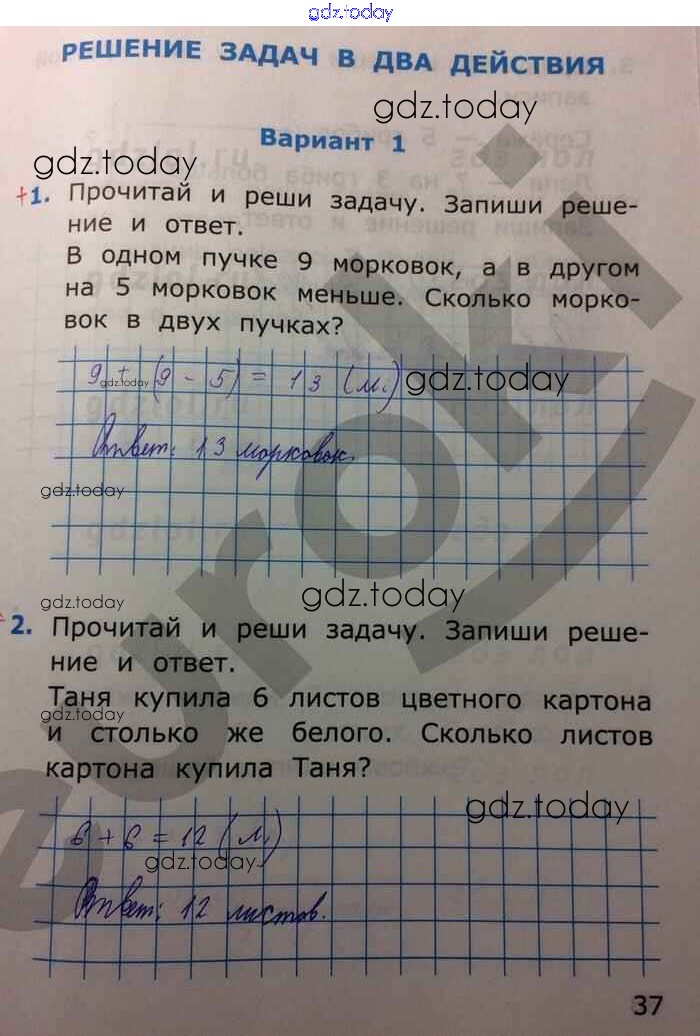 gdz.today
РЕШЕНИЕ ЗАДАЧ В ДВА ДЕЙСТВИЯ
gdz.today
Вариант 1
gdz.today
+1. Прочитай и реши задачу. Запиши реше-
ние и ответ.
В одном пучке 9 морковок, а в другом
на 5 морковок меньше. Сколько морко-
вок в двух пучках?
9 + (9 - 5) = 13 (м.)
gdz.today
gdz.today
Ответ: 13 морковок.
gdz.today
gdz.today
gdz.today
2. Прочитай и реши задачу. Запиши реше-
ние и ответ.
Таня купила 6 листов цветного картона
gdz.today
и столько же белого. Сколько листов
картона купила Таня?
gdz.today
6 + 6 = 12 (л.)
gdz.today
Ответ: 12 листов.
37
euroki